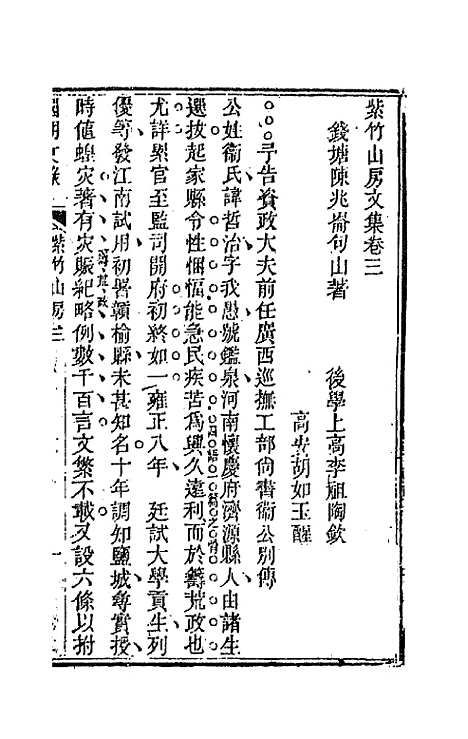 紫竹山房文集卷三
錢塘陳兆崙句山著 後學上高李祖陶欽
高安胡如玉醒
予告資政大夫前任廣西巡撫工部尚書衞公別傳
公姓衞氏諱哲治字我愚號鑑泉河南懷慶府濟源縣人由諸生
選拔起家縣令性悃愊能急民疾苦爲興久遠利而於籌荒政也
尤詳累官至監司開府初終如一雍正八年 廷試大學貢生列
優等發江南試用初署贛榆縣未甚知名十年調知鹽城尋實授
時値蝗灾著有灾賑紀略例數千百言文繁不載又設六條以拊
國朝文錄 紫竹山房三